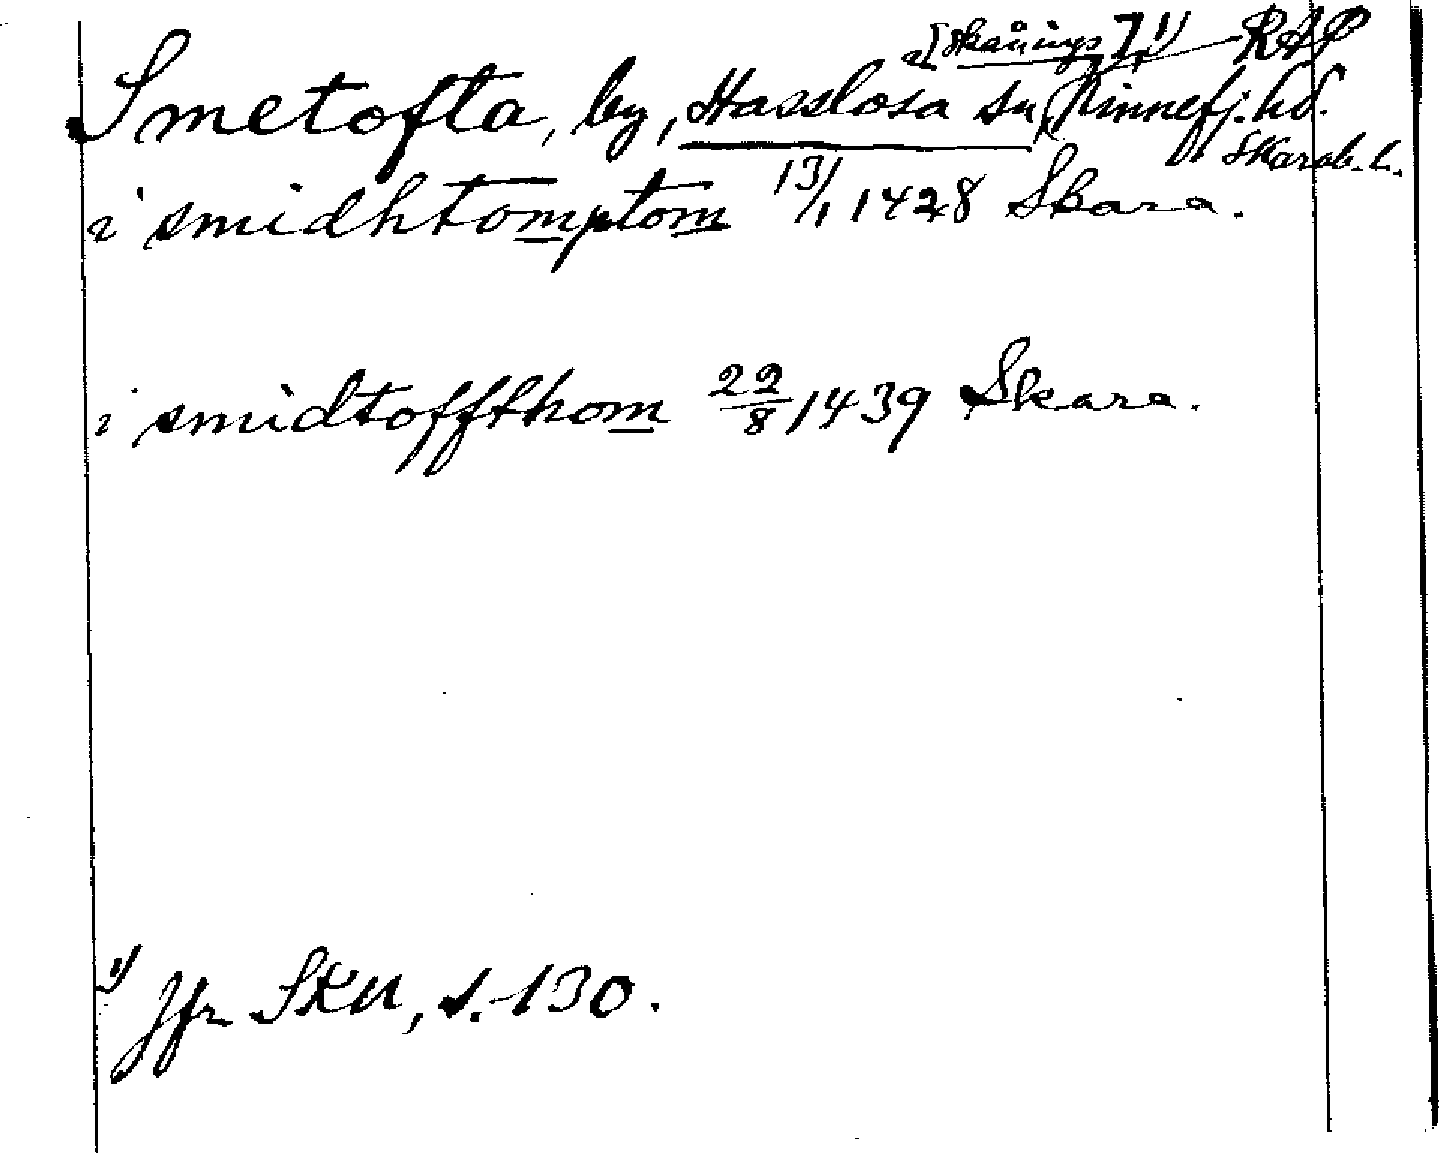 i [Skånings] 1) RAP
Smetofta, by, Hasslösa sn, Kinnefj. hd.
Skarab. l.
i smidhtomptom 13/1 1428 Skara.
i smidtoffthom 22/8 1439 Skara.
1) Jfr SKU, s. 130.